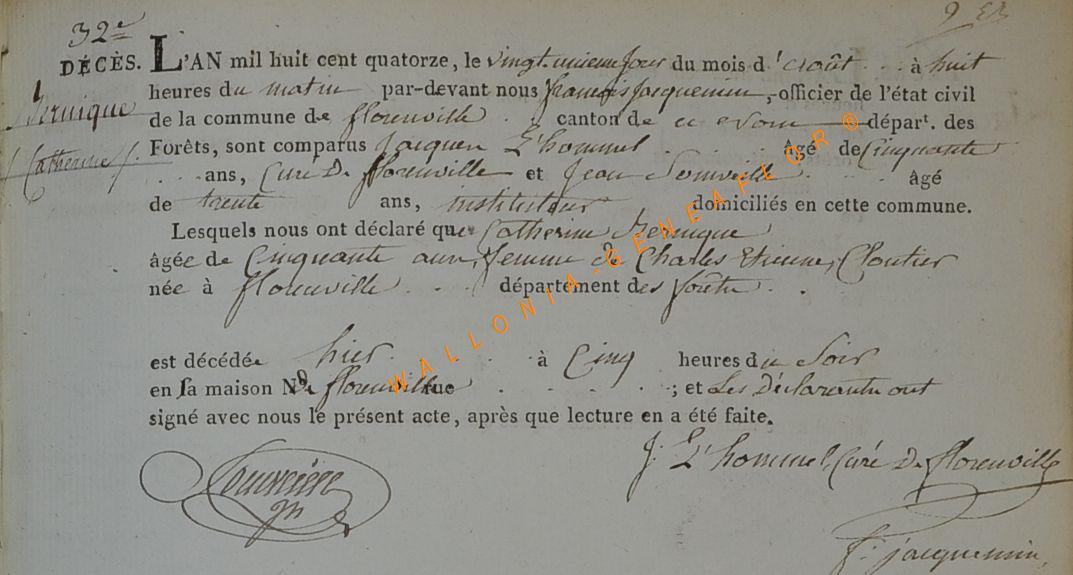 32e
DÉCÈS. L'AN mil huit cent quatorze, le vingt-unieme jour du mois d'août à huit
Bernique heures du matin par-devant nous françois jacquemin, officier de l'état civil
de la commune de florenville canton de départ. des
/ Catherine / Forêts, sont comparus Jacques L'hommel âgé de Cinquante
ans, Curé De florenville et Jean âgé
de trente ans, instituteur domiciliés en cette commune.
Lesquels nous ont déclaré que Catherine Bernique
âgée de Cinquante ans, femme de Charles Etienne, Cloutier
née à florenville département des forêts
est décédée hier à Cinq heures du Soir
en sa maison N. de florenville rue ; et Les Déclarants ont
signé avec nous le présent acte, après que lecture en a été faite.
J. L'hommel, Curé De florenville
f. jacquemin
WALLONIA-GENEAFLOR ©